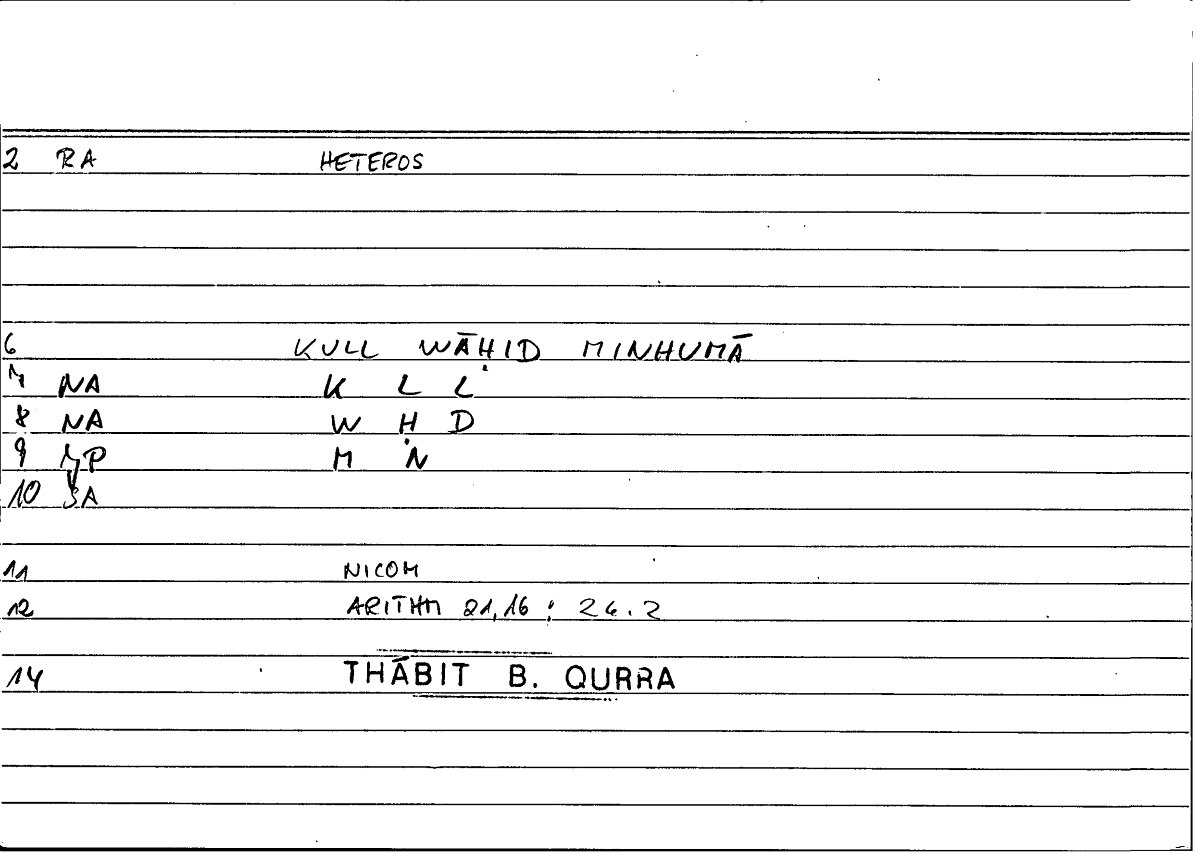 2 RA HETEROS
6 KULL WĀḤID MINHUMĀ
7 NA K L L
8 NA W Ḥ D
9 P M N
10 SA
11 NICOM
12 ARITHM 21,16 ; 26.2
14 THĀBIT B. QURRA